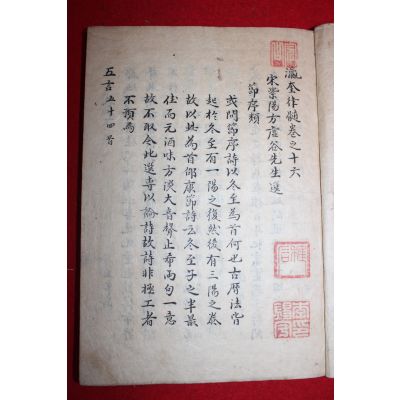 瀛奎律髓卷之十六
宋紫陽方虛谷先生選
節序類
或問節序詩以冬至為首何也古曆法皆
起於冬至百一陽之復然後有三陽之泰
故以此為首邵康節詩云冬至子之半最
佳而元酒味方淡大音聲止希兩句一意
故不取今此選專以論詩故詩非極工者
不預焉
五言五十四首